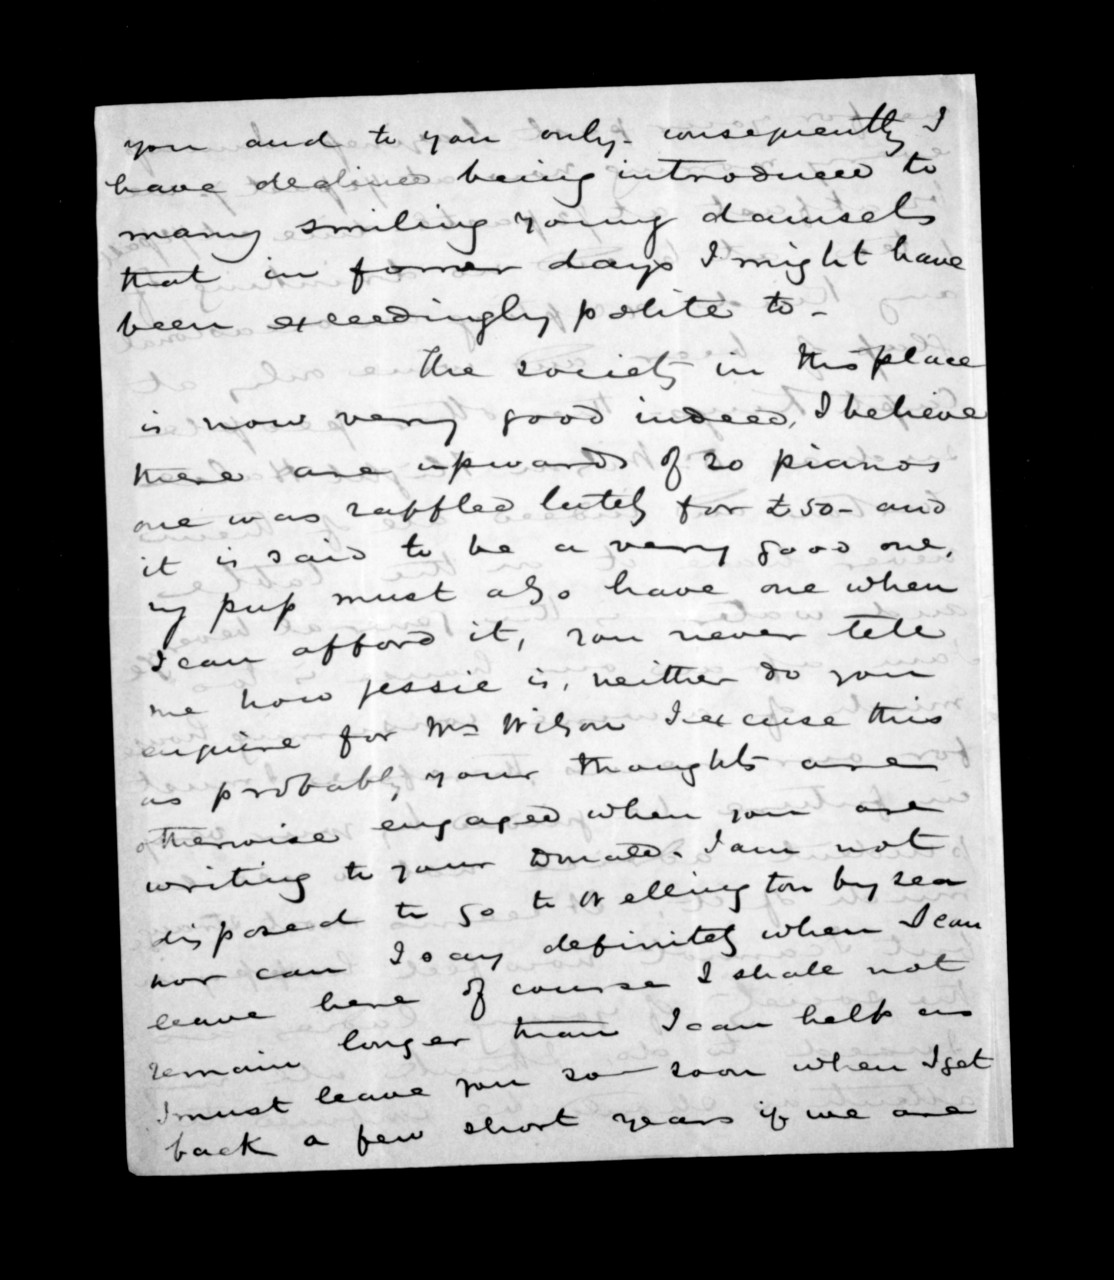 you and to you only. consequently I
have declined being introduced to
many smiling young damsels
that in former days I might have
been exceedingly polite to -
The society in this place
is now very good indeed, I believe
there are upwards of 20 pianos
one was raffled lately for £50 - and
it is said to be a very good one,
my pup must also have one when
I can afford it, you never tell
me how Jessie is, neither do you
enquire for Mrs Wilson I excuse this
as probably your thoughts are
otherwise engaged when you are
writing to your Donald. I am not
disposed to go to Wellington by sea
nor can I say definitely when I can
leave here of course I shall not
remain longer than I can help as
I must leave you so soon when I get
back a few short years if we are